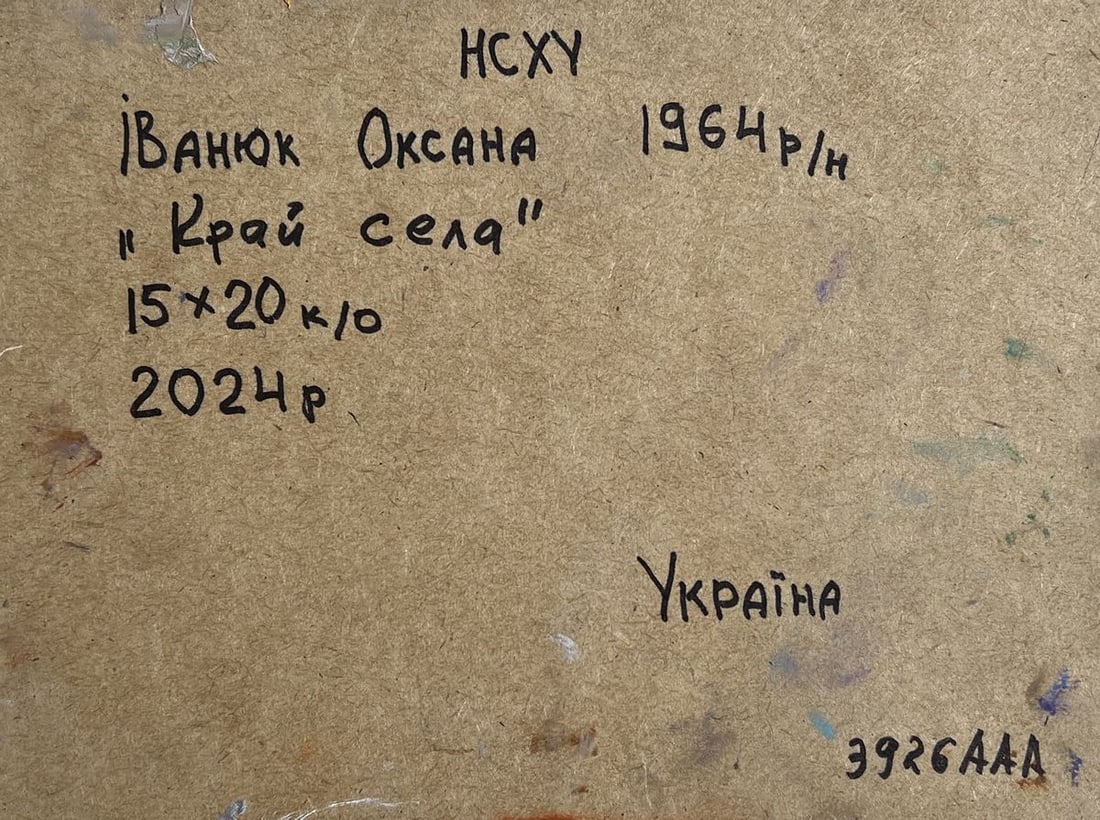 НСХУ
Іванюк Оксана 1964 р/н
„Край села"
15×20 к/о
2024 р
Україна
3926ААА